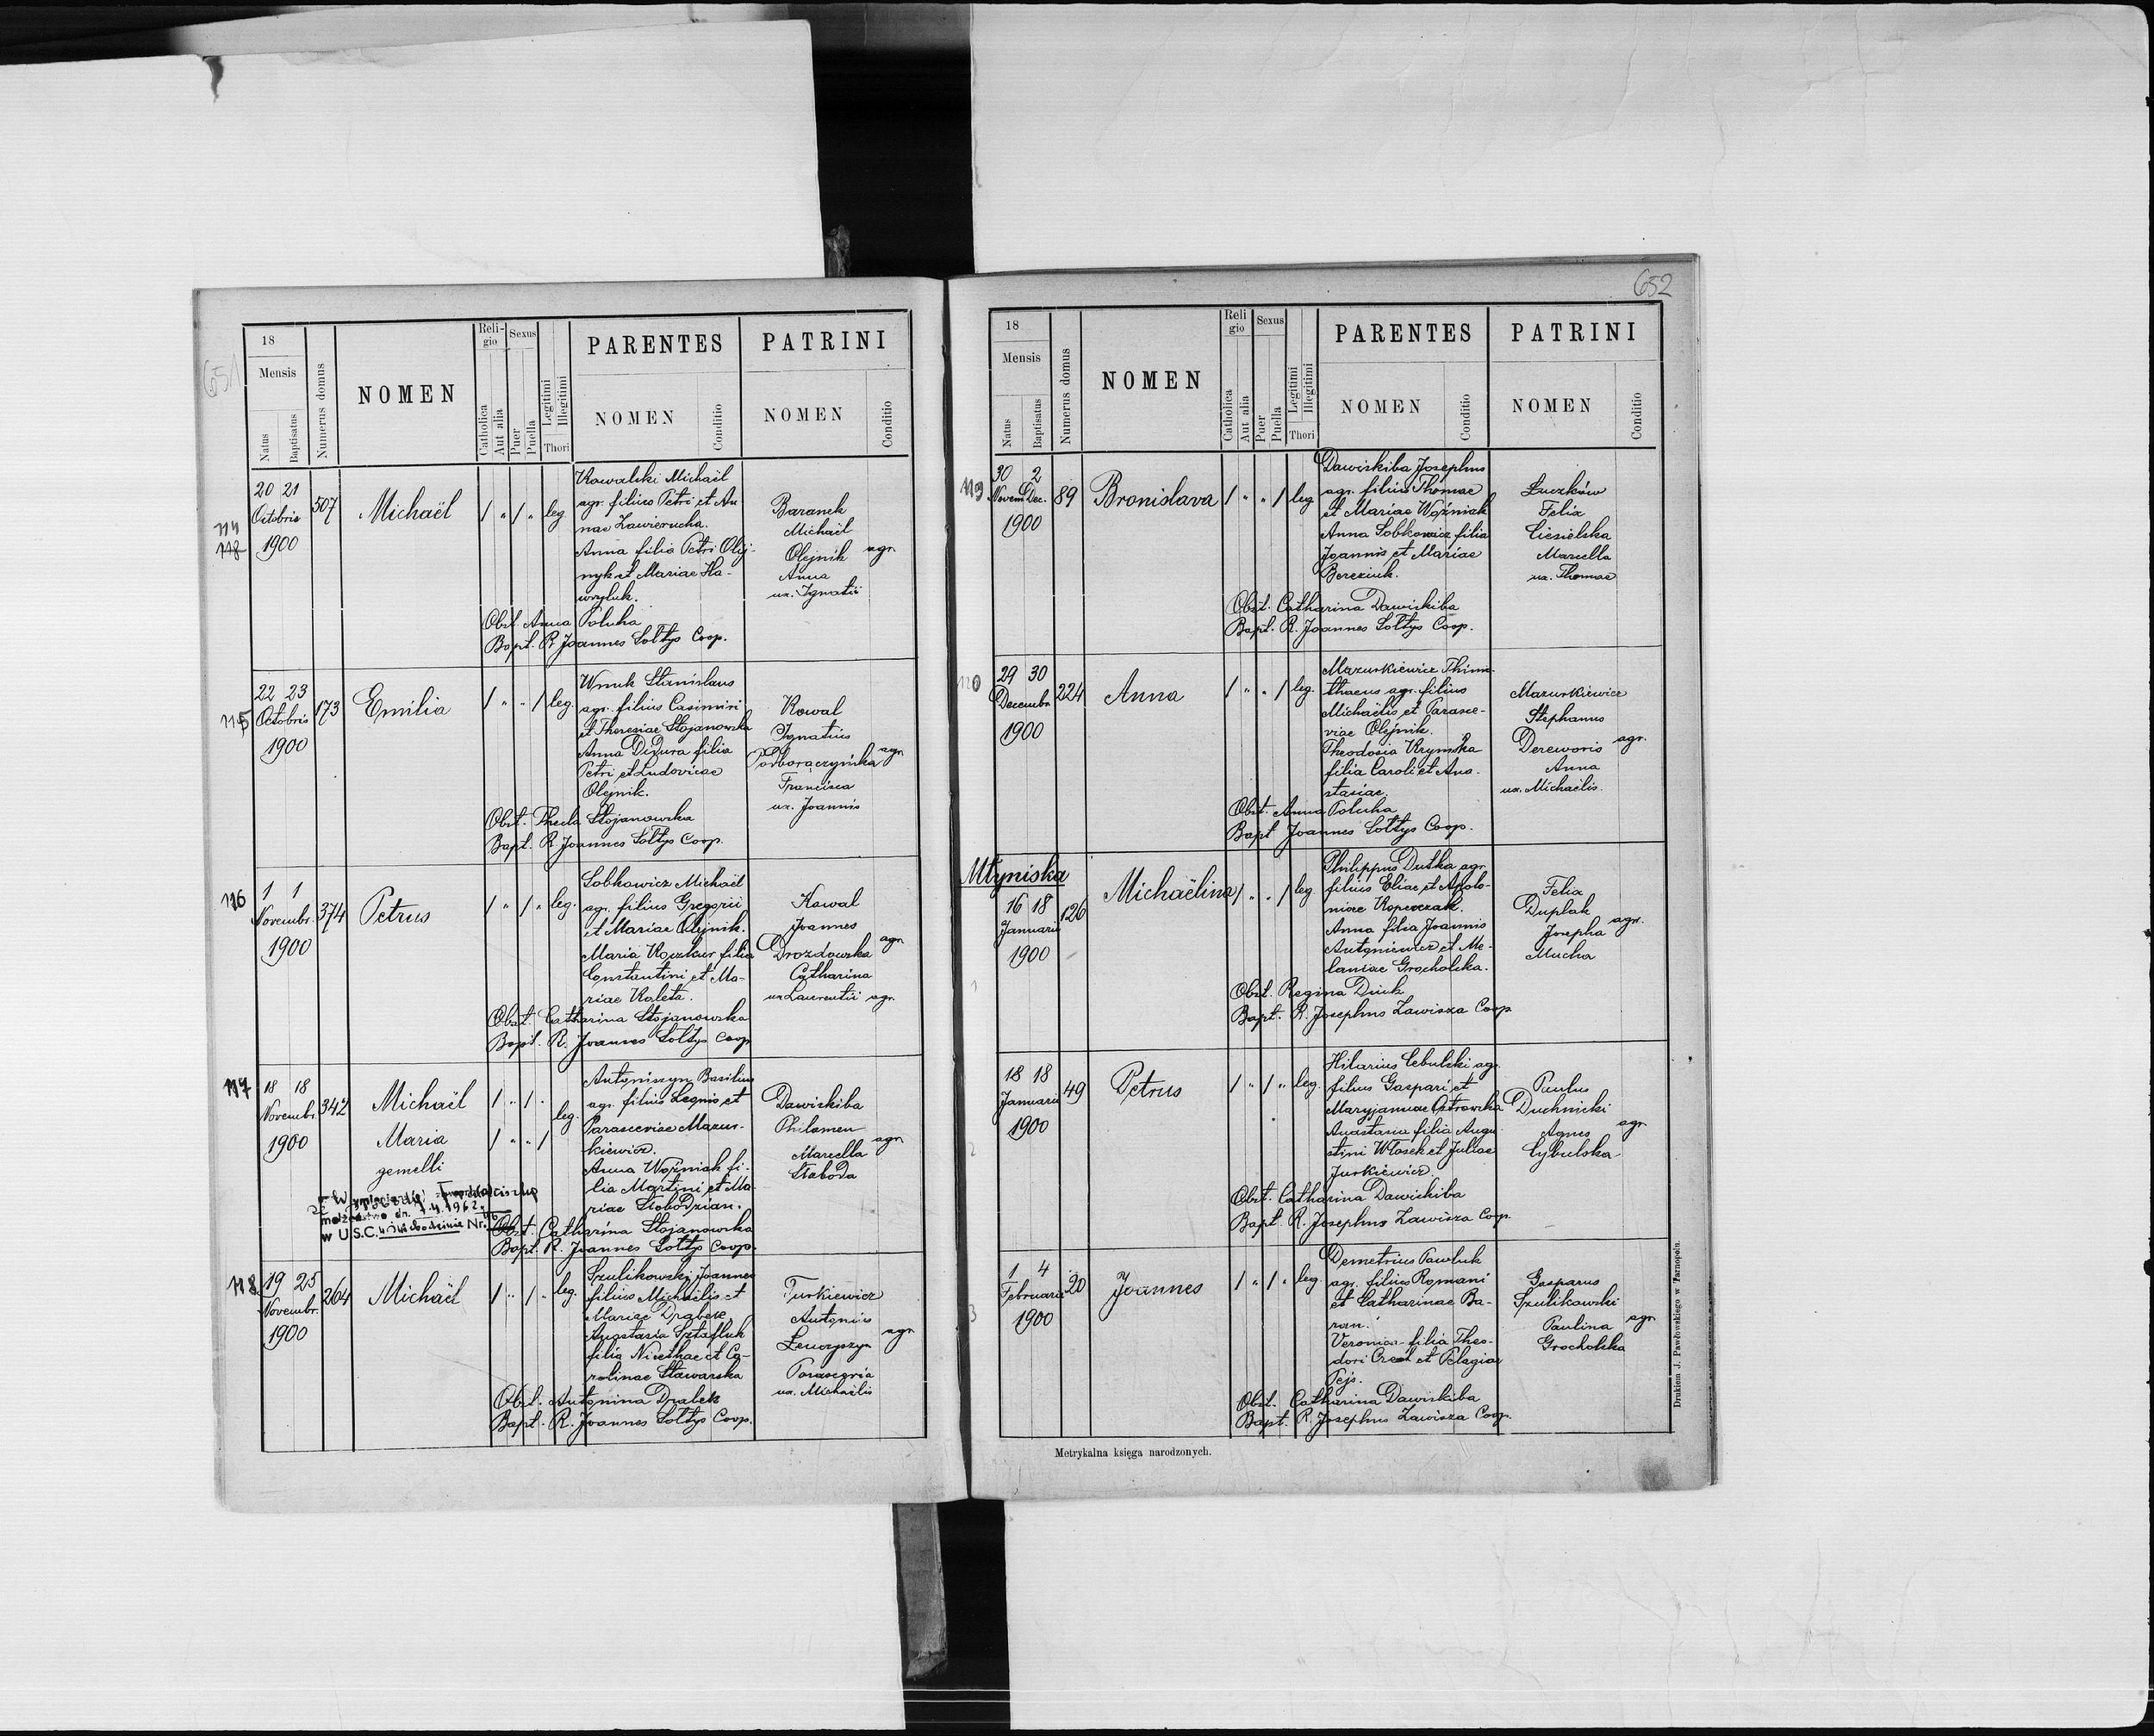 651
18
Mensis
Natus
Baptisatus
Numerus domus
NOMEN
Reli-
gio
Catholica
Aut alia
Sexus
Puer
Puella
Legitimi
Illegitimi
Thori
PARENTES
NOMEN
Conditio
PATRINI
NOMEN
Conditio
114
118
20 21
Octobris
1900
507
Michaël
/ " / " leg.
Kowalski Michaël
agr. filius Petri et An
nae Zawierucha.
Anna filia Petri Olij-
nyk et Mariae Ha-
wryluk.
Baranek
Michaël
Olejnik agr.
Anna
ux. Ignatii
Obst. Anna Poluha
Bapt. R. Joannes Soltys Coop.
115
22 23
Octobris
1900
173
Emilia
/ " " / leg.
Wnuk Stanislaus
agr. filius Casimiri
et Theresiae Stojanowska
Anna Didura filia
Petri et Ludovicae
Olejnik.
Kowal
Ignatius
Podhoraczyńska agr.
Francisca
ux. Joannis
Obst. Thecla Stojanowska
Bapt. R. Joannes Soltys Coop.
116
1 1
Novembr.
1900
374
Petrus
/ " / " leg.
Sobkowicz Michaël
agr. filius Gregorii
et Mariae Olejnik.
Maria Koczkur filia
Constantini et Ma-
riae Kaleta.
Kowal
Joannes
Drozdowska agr.
Catharina
ux Laurentii agr.
Obst. Catharina Stojanowska
Bapt. R. Joannes Soltys Coop
117
18 18
Novembr.
1900
342
Michaël
Maria
gemelli
/ " / "
leg.
/ " " /
Antoniszyn Basilius
agr. filius Leonis et
Parasceviae Mazur-
kiewicz.
Anna Woźniak fi-
lia Martini et Ma-
riae Slobodzian.
Dawiskiba
Philomen
Marcella agr.
Sloboda
małżeństwo dn. 1962.
w U.S.C. Nr.
Obst. Catharina Stojanowska
Bapt. R. Joannes Soltys Coop.
118
19 25
Novembr.
1900
264
Michaël
/ " / " leg.
Szulikowski Joannes
filius Michaëlis et
Mariae Drabek
Anastasia Sztafluk
filia Nicethae et Ca-
rolinae Stawarska
Turkiewicz
Antonius
Lewczyszyn agr
Parascevia
ux. Michaëlis
Obst. Antonina Drabek
Bapt. R. Joannes Soltys Coop.
652
18
Mensis
Natus
Baptisatus
Numerus domus
NOMEN
Reli
gio
Catholica
Aut alia
Sexus
Puer
Puella
Legitimi
Illegitimi
Thori
PARENTES
NOMEN
Conditio
PATRINI
NOMEN
Conditio
119
30 2
Novem. Dec.
1900
89
Bronislava
/ " " / leg
Dawiskiba Josephus
agr. filius Thomae
et Mariae Woźniak
Anna Sobkowicz filia
Joannis et Mariae
Bereziuk.
Łuczków
Felix
Ciesielska
Marcella
ux. Thomae
Obst. Catharina Dawiskiba
Bapt. R. Joannes Soltys Coop.
120
29 30
Decembr.
1900
224
Anna
/ " " / leg.
Mazurkiewicz Thimo-
thaeus agr. filius
Michaëlis et Parasce-
viae Olejnik.
Theodosia Krymska
filia Caroli et Ana-
stasiae.
Mazurkiewicz
Stephanus
Dereworis agr.
Anna
ux. Michaëlis.
Obst. Anna Poluha
Bapt Joannes Soltys Coop.
Młyniska
1
16 18
Januarii
1900
126
Michaëlina
/ " " / leg.
Philippus Dutka agr.
filius Eliae et Apolo-
niae Koperczak.
Anna filia Joannis
Antoniewicz et Me-
laniae Grocholska.
Felix
Duplak
Josepha agr.
Mucha
Obst. Regina Diuk
Bapt. R. Josephus Zawisza Coop
2
18 18
Januarii
1900
49
Petrus
/ " / " leg.
Hilarius Cebulski ag.
filius Gaspari et
Maryjannae Ostrowska
Anastasia filia Augu-
stini Włosek et Juliae
Jurkiewicz.
Paulus
Duchnicki
Agnes agr
Cybulska
Obst. Catharina Dawiskiba
Bapt. R. Josephus Zawisza Coop.
3
1 4
Februarii
1900
20
Joannes
/ " / " leg.
Demetrius Pawluk
agr. filius Romani
et Catharinae Ba-
ran.
Veronica filia Theo-
dori et Pelagiae
Pejs.
Gasparus
Szulikowski
Paulina agr
Grocholska
Obst. Catharina Dawiskiba
Bapt. R. Josephus Zawisza Coop.
Metrykalna księga narodzonych.
Drukiem J. Pawłowskiego w Tarnopolu.